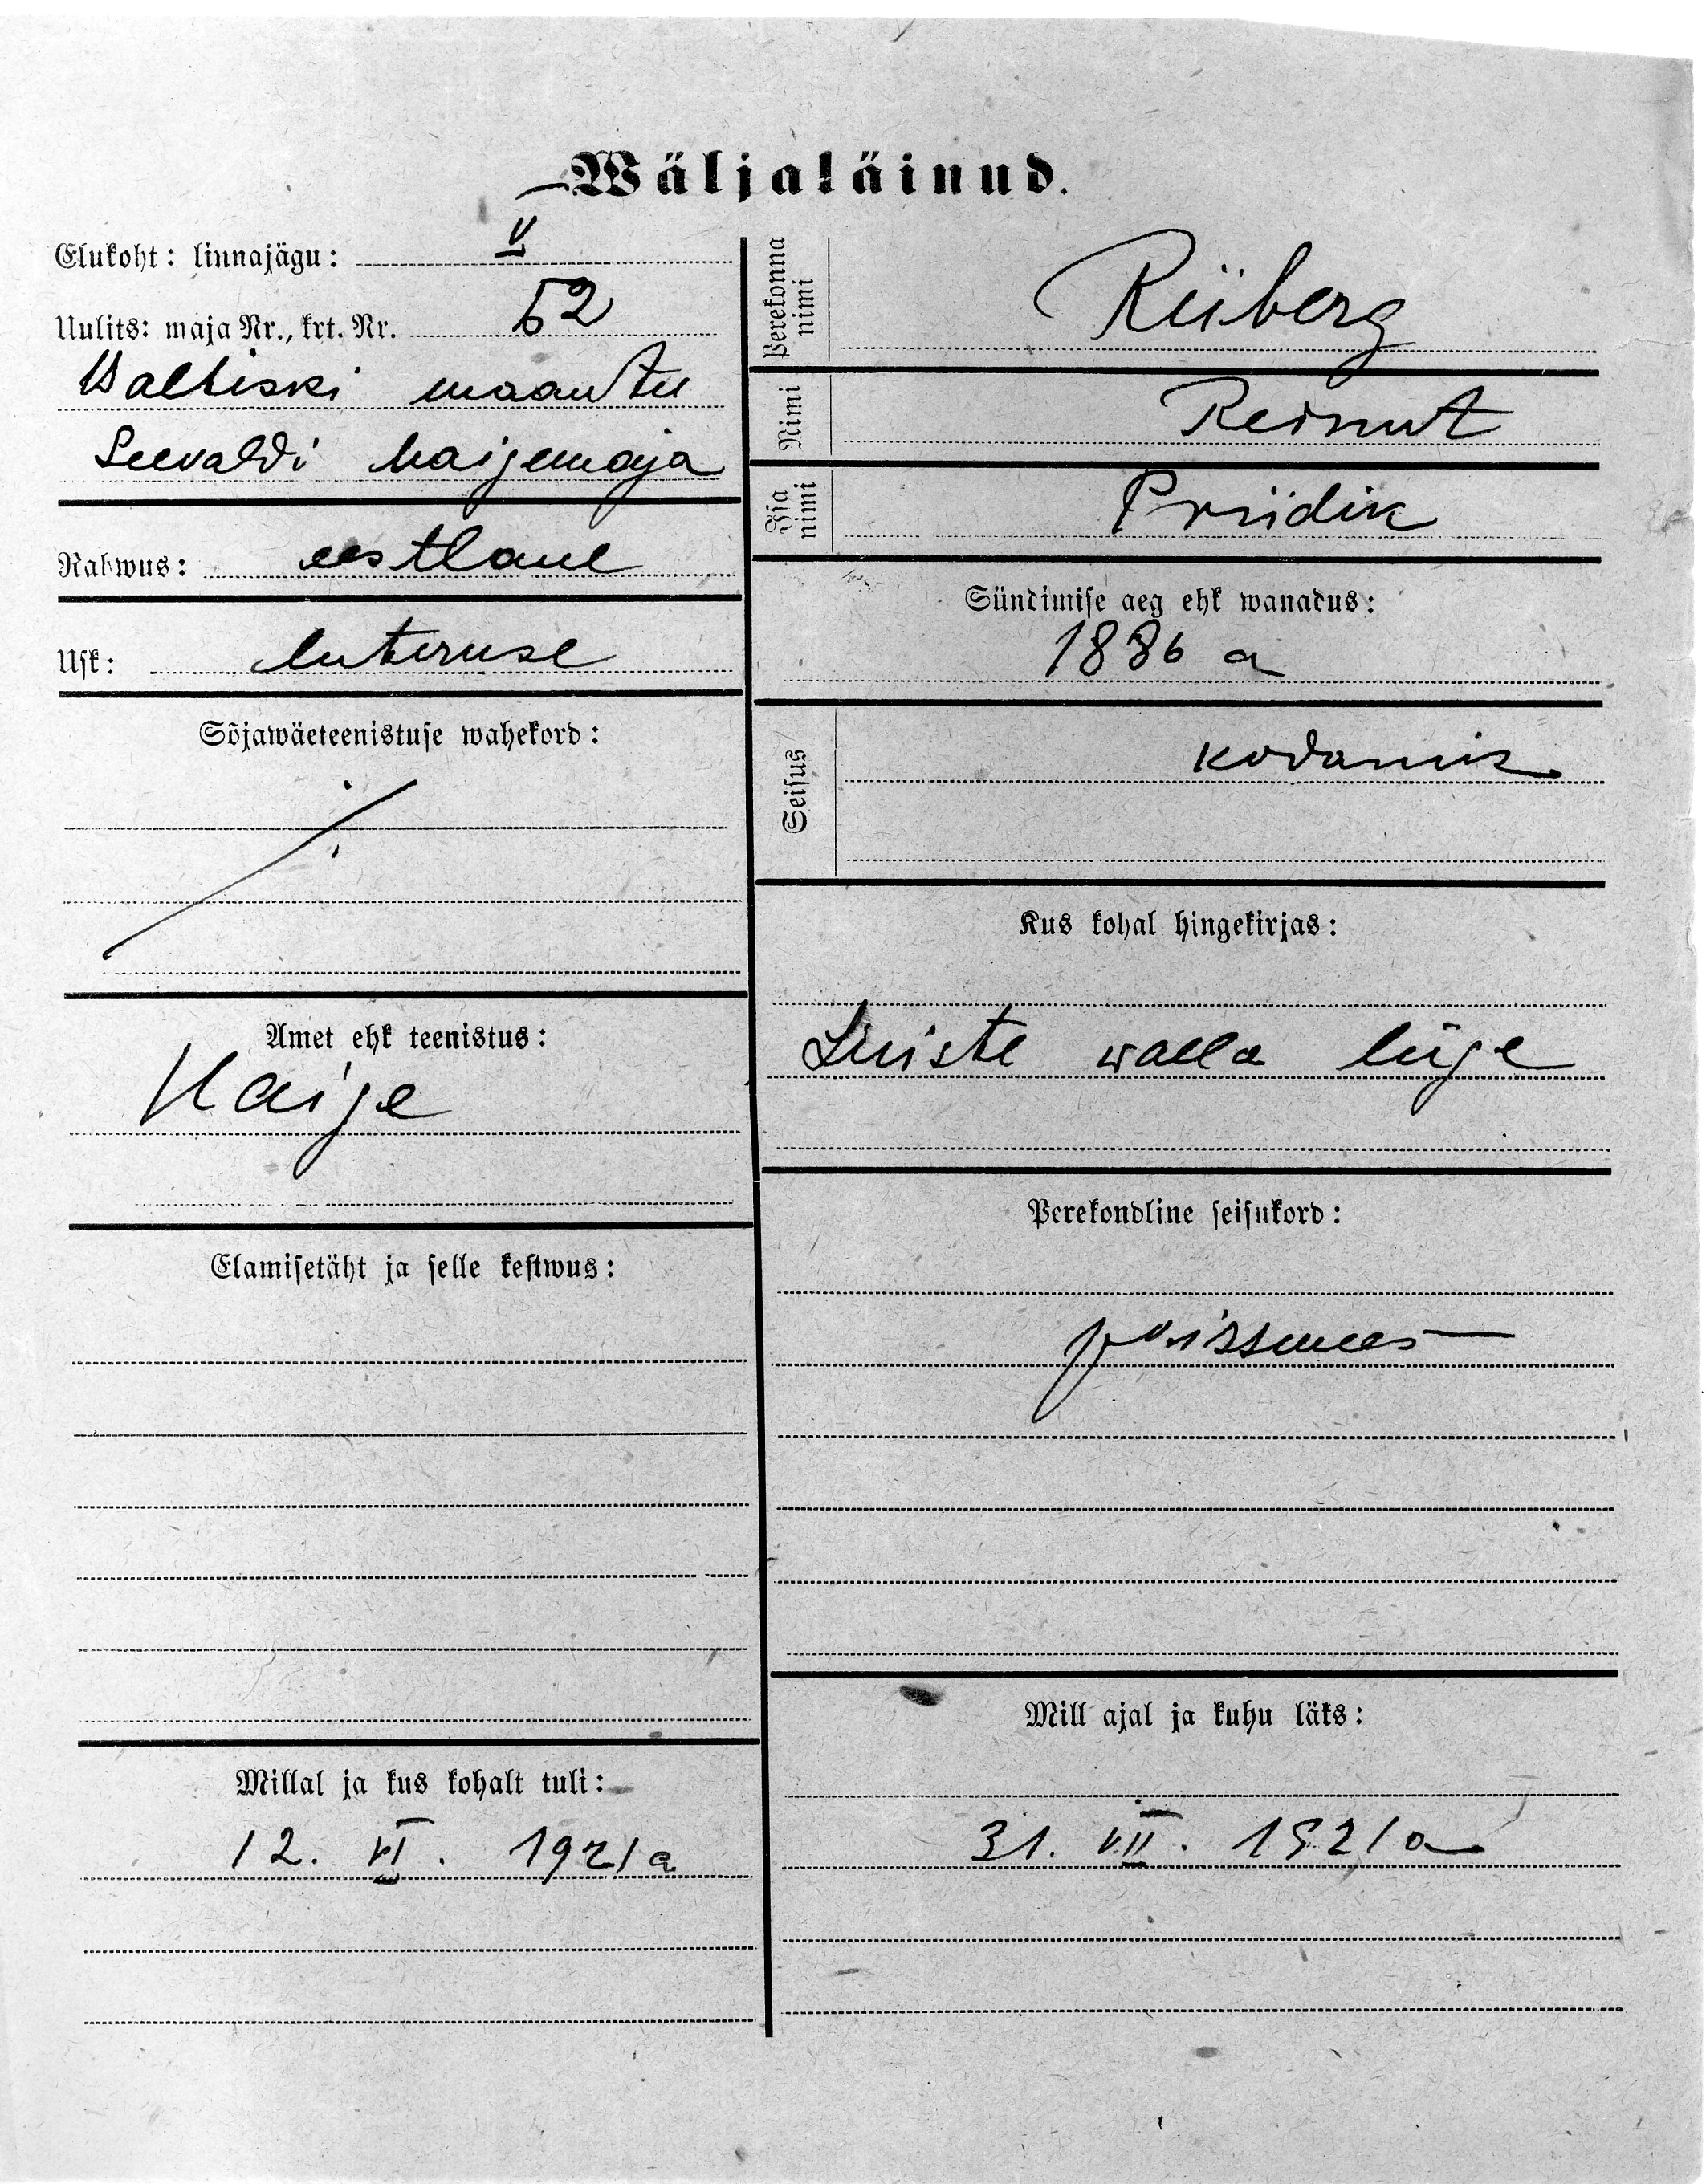 Wäljaläinud.
Elukoht: linnajagu: V
Uulits: maja Nr., krt. Nr. 52
Baltiski maantee
Seevaldi haigemaja
Rahwus: eestlane
Usk: luteruse
Sõjawäeteenistuse wahekord:
Amet ehk teenistus:
Haige
Elamisetäht ja selle kestwus:
Millal ja kus kohalt tuli:
12. VI. 1921 a
Perekonna nimi Riiberg
Nimi Reinut
Isa nimi Priidik
Sündimise aeg ehk wanadus:
1886 a
Seisus kodanik
Kus kohal hingekirjas:
walla liige
Perekondline seisukord:
poissmees
Mill ajal ja kuhu läks:
31. VII. 1921 a